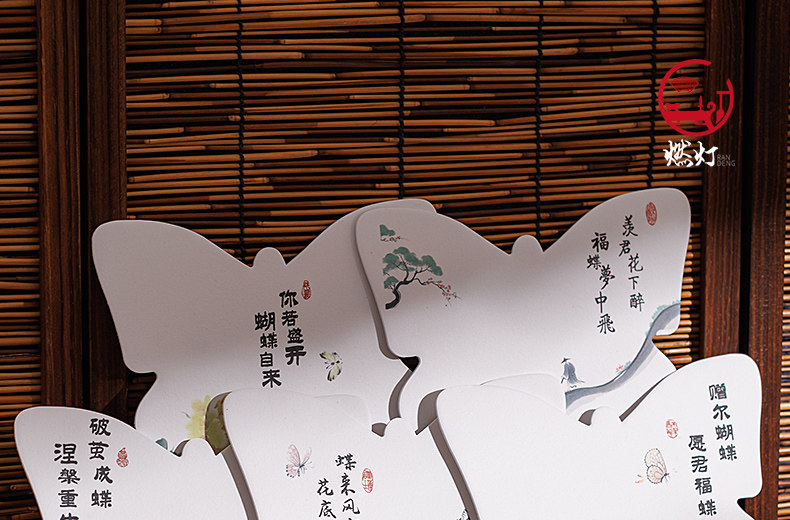 燃灯
RAN
DENG
你若盛开
蝴蝶自来
羡君花下醉
福蝶夢中飛
破茧成蝶
涅槃重
蝶来风
花底
赠尔蝴蝶
愿君福蝶